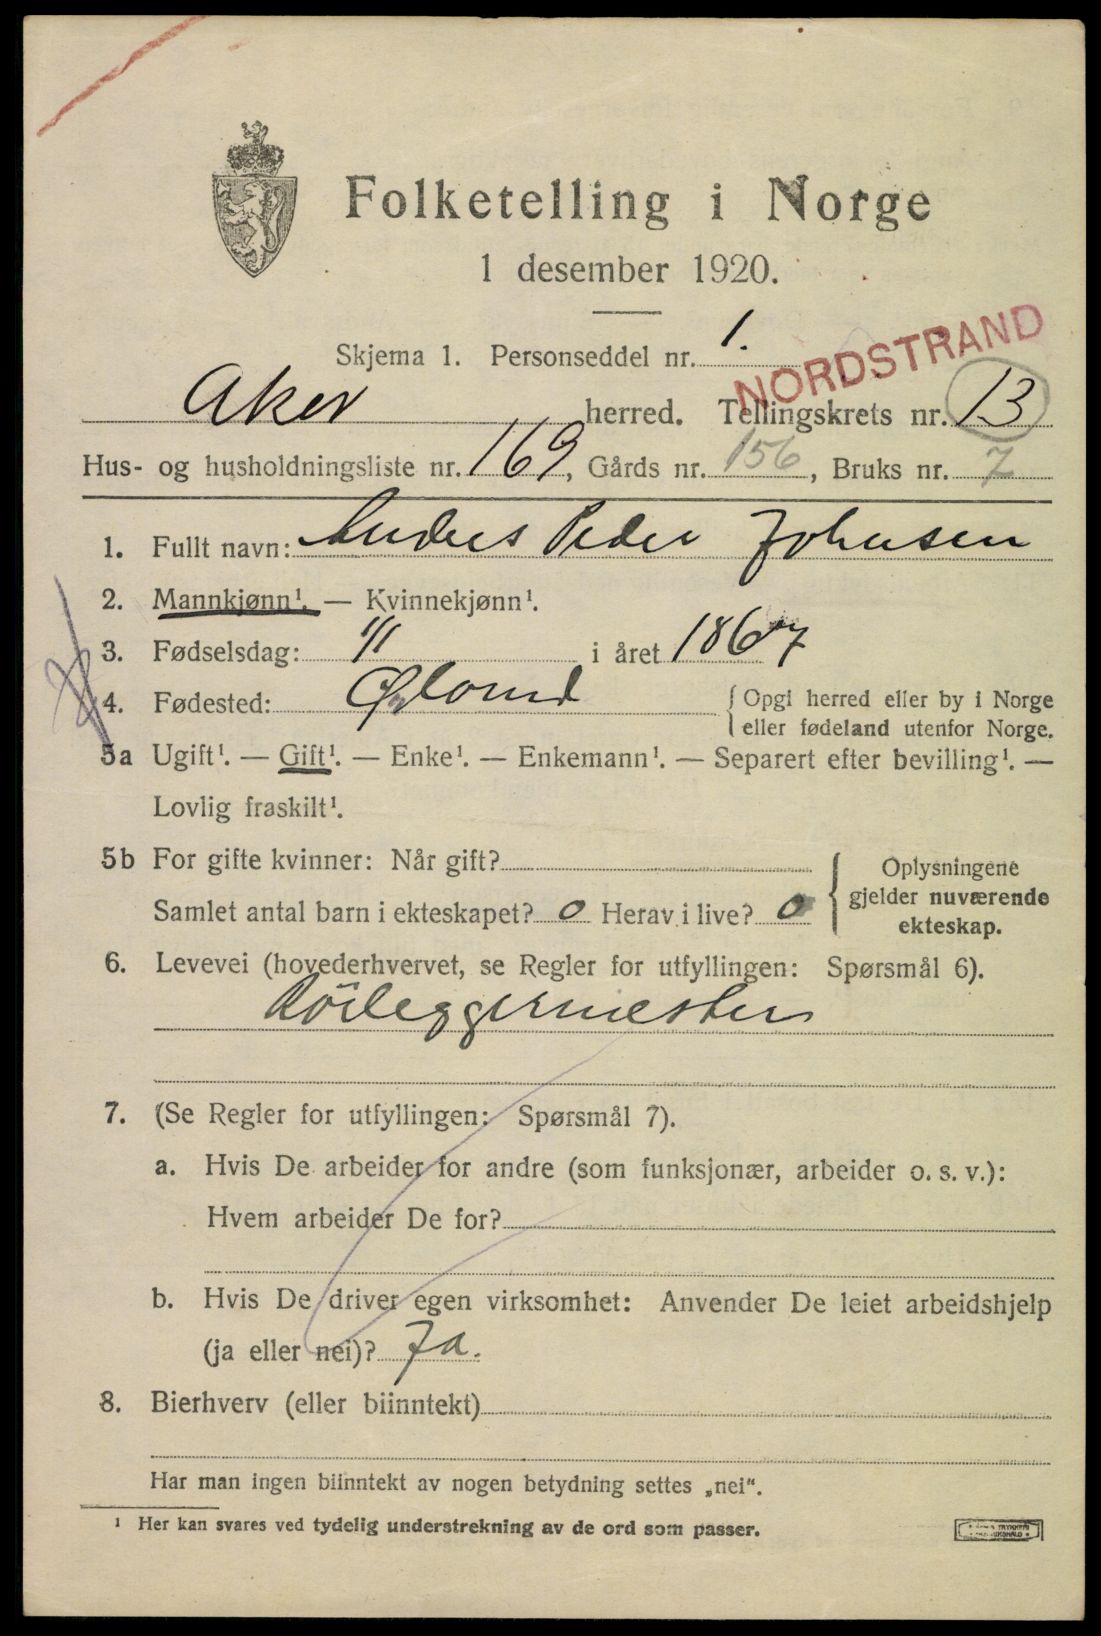 Folketelling i Norge
1 desember 1920.
Skjema 1. Personseddel nr. 1.
NORDSTRAND
Aker herred. Tellingskrets nr. 13
Hus- og husholdningsliste nr. 169, Gårds nr. 156, Bruks nr. 7
1. Fullt navn: Anders Peder Johnsen
2. Mannkjønn¹. — Kvinnekjønn¹.
3. Fødselsdag: 1/1 i året 1867
4. Fødested: {Opgi herred eller by i Norge
eller fødeland utenfor Norge.
5a Ugift¹. — Gift¹. — Enke¹. — Enkemann¹. — Separert efter bevilling¹. —
Lovlig fraskilt¹.
5b For gifte kvinner: Når gift?
Samlet antal barn i ekteskapet? 0 Herav i live? 0
Oplysningene
gjelder nuværende
ekteskap.
6. Levevei (hovederhvervet, se Regler for utfyllingen: Spørsmål 6).
Rörleggermester
7. (Se Regler for utfyllingen: Spørsmål 7).
a. Hvis De arbeider for andre (som funksjonær, arbeider o. s. v.):
Hvem arbeider De for?
b. Hvis De driver egen virksomhet: Anvender De leiet arbeidshjelp
(ja eller nei)? Ja.
8. Bierhverv (eller biinntekt)
Har man ingen biinntekt av nogen betydning settes „nei".
¹ Her kan svares ved tydelig understrekning av de ord som passer.